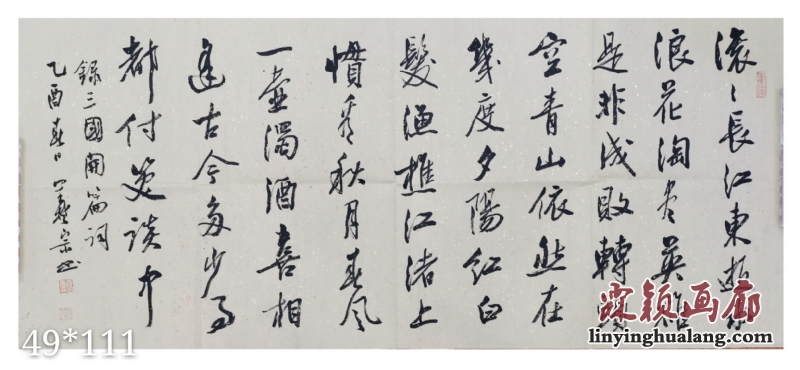 滚々長江東逝水
浪花淘尽英雄
是非成敗轉頭
空青山依然在
幾度夕陽红白
髮漁樵江渚上
慣看秋月春风
一壺濁酒喜相
逢古今多少事
都付笑談中
錄三國開篇词
乙酉春日 宗书
49*111
颖画廊
linyinghualang.com